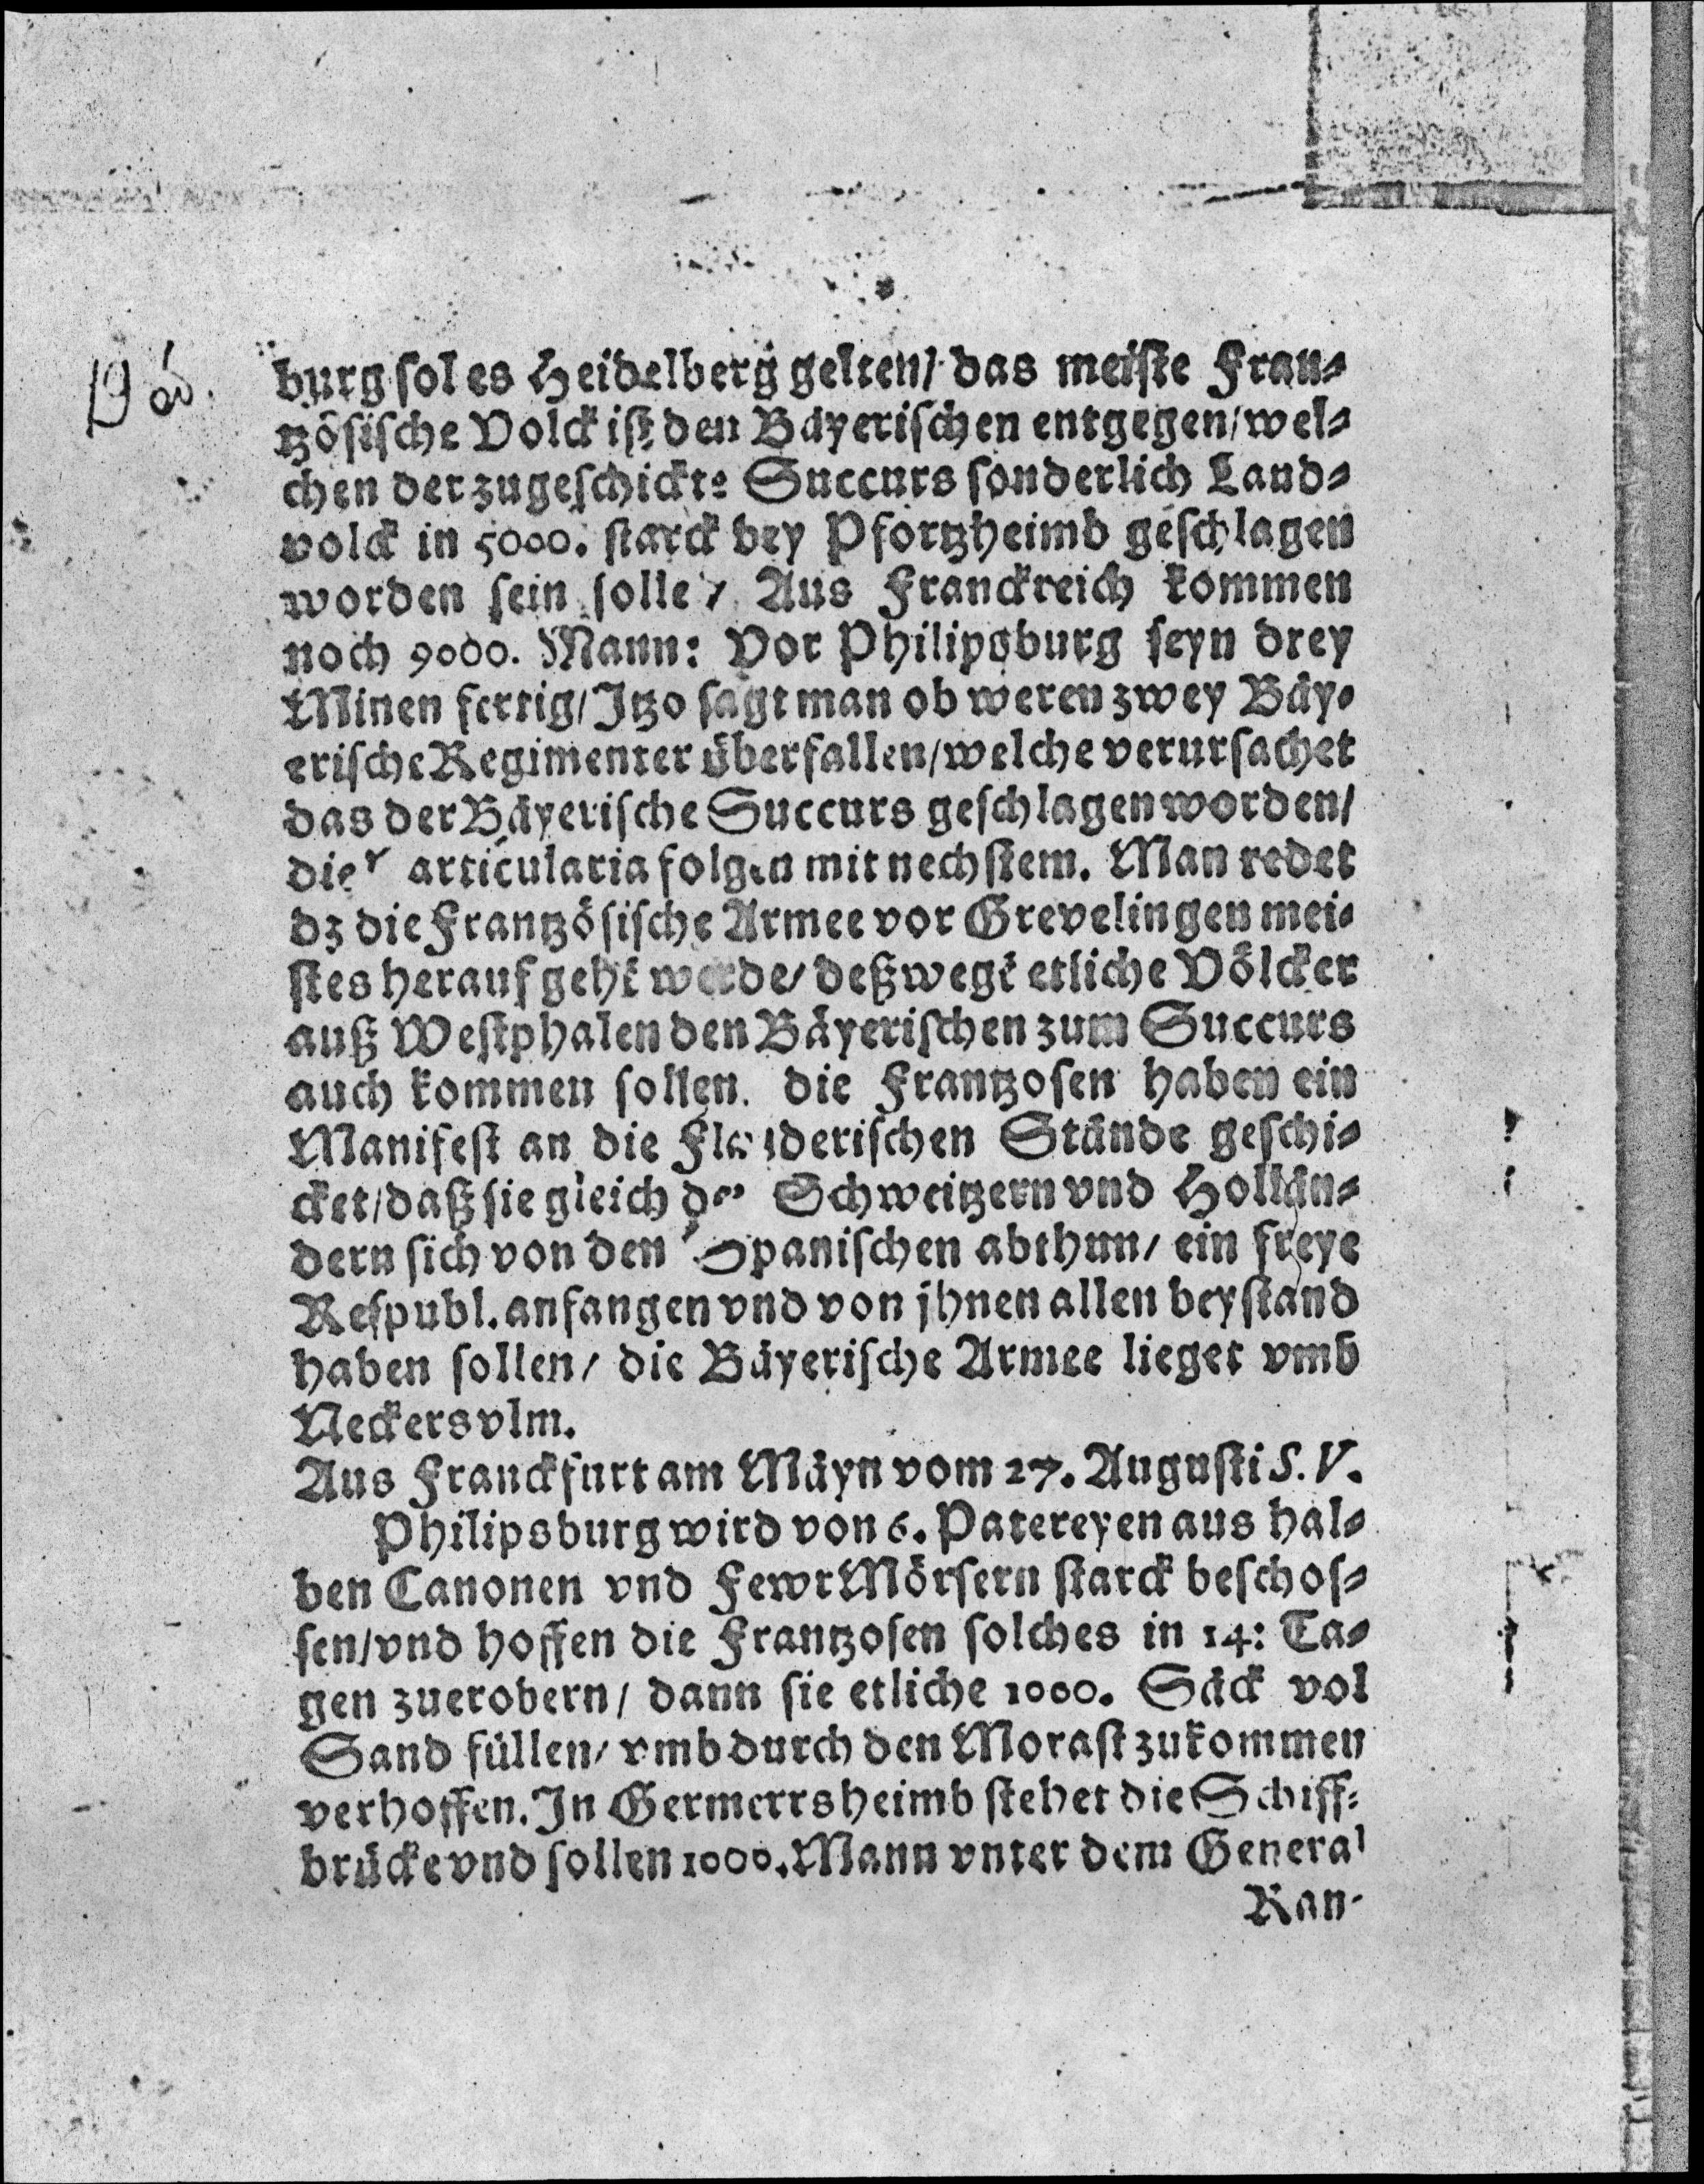 burg sol es Heidelberg gelten/ das meiste Fran⸗
tzösische Volck ist den Bäyerischen entgegen/ wel⸗
chen der zugeschickte Succurs sonderlich Land⸗
volck in 5000. starck bey Pfortzheimb geschlagen
worden sein solle/ Aus Franckreich kommen
noch 9000. Mann: Vor Philipsburg seyn drey
Minen fertig/ Itzo sagt man ob weren zwey Bäy⸗
erische Regimenter überfallen/ welche verursachet
das der Bäyerische Succurs geschlagen worden/
die articularia folgen mit nechstem. Man redet
dz die Frantzösische Armee vor Grevelingen mei⸗
stes herauf gehē werde/ deßwegē etliche Völcker
auß Westphalen den Bäyerischen zum Succurs
auch kommen sollen. die Frantzosen haben ein
Manifest an die Flanderischen Stände geschi⸗
cket/ daß sie gleich Schweitzern vnd Hollän⸗
dern sich von den Spanischen abthun/ ein freye
Respubl. anfangen vnd von jhnen allen beystand
haben sollen/ die Bäyerische Armee lieget vmb
Neckersvlm.
Aus Franckfurt am Mäyn vom 27. Augusti S. V.
Philipsburg wird von 6. Patereyen aus hal⸗
ben Canonen vnd FewrMörsern starck beschos⸗
sen/ vnd hoffen die Frantzosen solches in 14: Ta⸗
gen zuerobern/ dann sie etliche 1000. Säck vol
Sand füllen/ vmb durch den Morast zukommen
verhoffen. In Germerrsheimb stehet die Schiff⸗
brücke vnd sollen 1000. Mann vnter dem General
Ran-